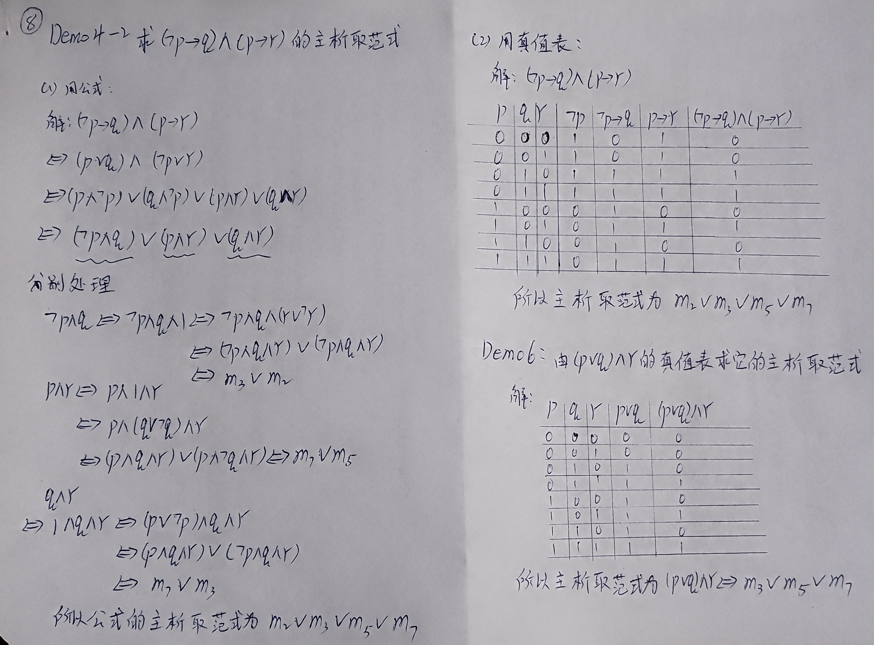 ⑧
Demo4-2 求(¬p→q)∧(p→r)的主析取范式
(1) 用公式:
解:(¬p→q)∧(p→r)
⇔(p∨q)∧(¬p∨r)
⇔(p∧¬p)∨(q∧¬p)∨(p∧r)∨(q∧r)
⇔(¬p∧q)∨(p∧r)∨(q∧r)
分别处理
¬p∧q⇔¬p∧q∧1⇔¬p∧q∧(r∨¬r)
⇔(¬p∧q∧r)∨(¬p∧q∧r)
⇔m₃∨m₂
p∧r⇔p∧1∧r
⇔p∧(q∨¬q)∧r
⇔(p∧q∧r)∨(p∧¬q∧r)⇔m₇∨m₅
q∧r
⇔1∧q∧r⇔(p∨¬p)∧q∧r
⇔(p∧q∧r)∨(¬p∧q∧r)
⇔m₇∨m₃
所以公式的主析取范式为 m₂∨m₃∨m₅∨m₇
(2) 用真值表:
解:(¬p→q)∧(p→r)
p q r ¬p ¬p→q p→r (¬p→q)∧(p→r)
0 0 0 1 0 1 0
0 0 1 1 0 1 0
0 1 0 1 1 1 1
0 1 1 1 1 1 1
1 0 0 0 1 0 0
1 0 1 0 1 1 1
1 1 0 0 1 0 0
1 1 1 0 1 1 1
所以主析取范式为 m₂∨m₃∨m₅∨m₇
Demo6: 由(p∨q)∧r的真值表求它的主析取范式
解:
p q r p∨q (p∨q)∧r
0 0 0 0 0
0 0 1 0 0
0 1 0 1 0
0 1 1 1 1
1 0 0 1 0
1 0 1 1 1
1 1 0 1 0
1 1 1 1 1
所以主析取范式为(p∨q)∧r⇔m₃∨m₅∨m₇